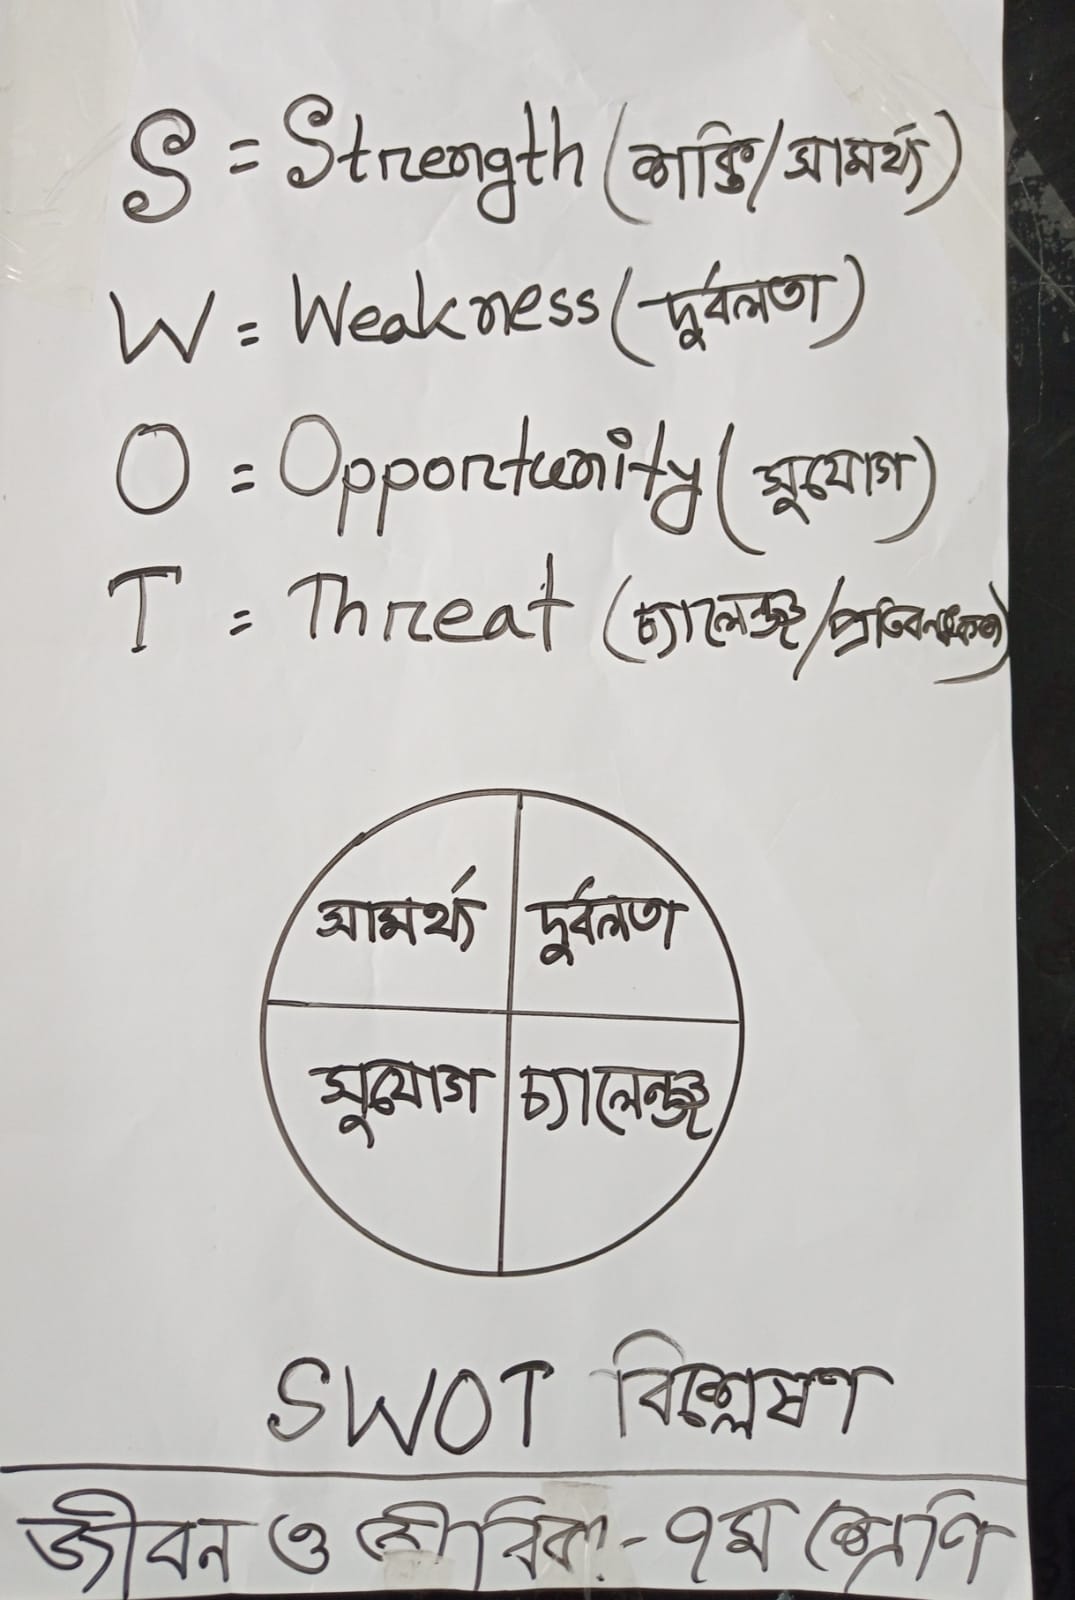 S = Strength (শক্তি/সামর্থ্য)
W = Weakness (দুর্বলতা)
O = Opportunity (সুযোগ)
T = Threat (চ্যালেঞ্জ/প্রতিবন্ধকতা)
সামর্থ্য দুর্বলতা
সুযোগ চ্যালেঞ্জ
SWOT বিশ্লেষণ
জীবন ও জীবিকা - ৭ম শ্রেণি